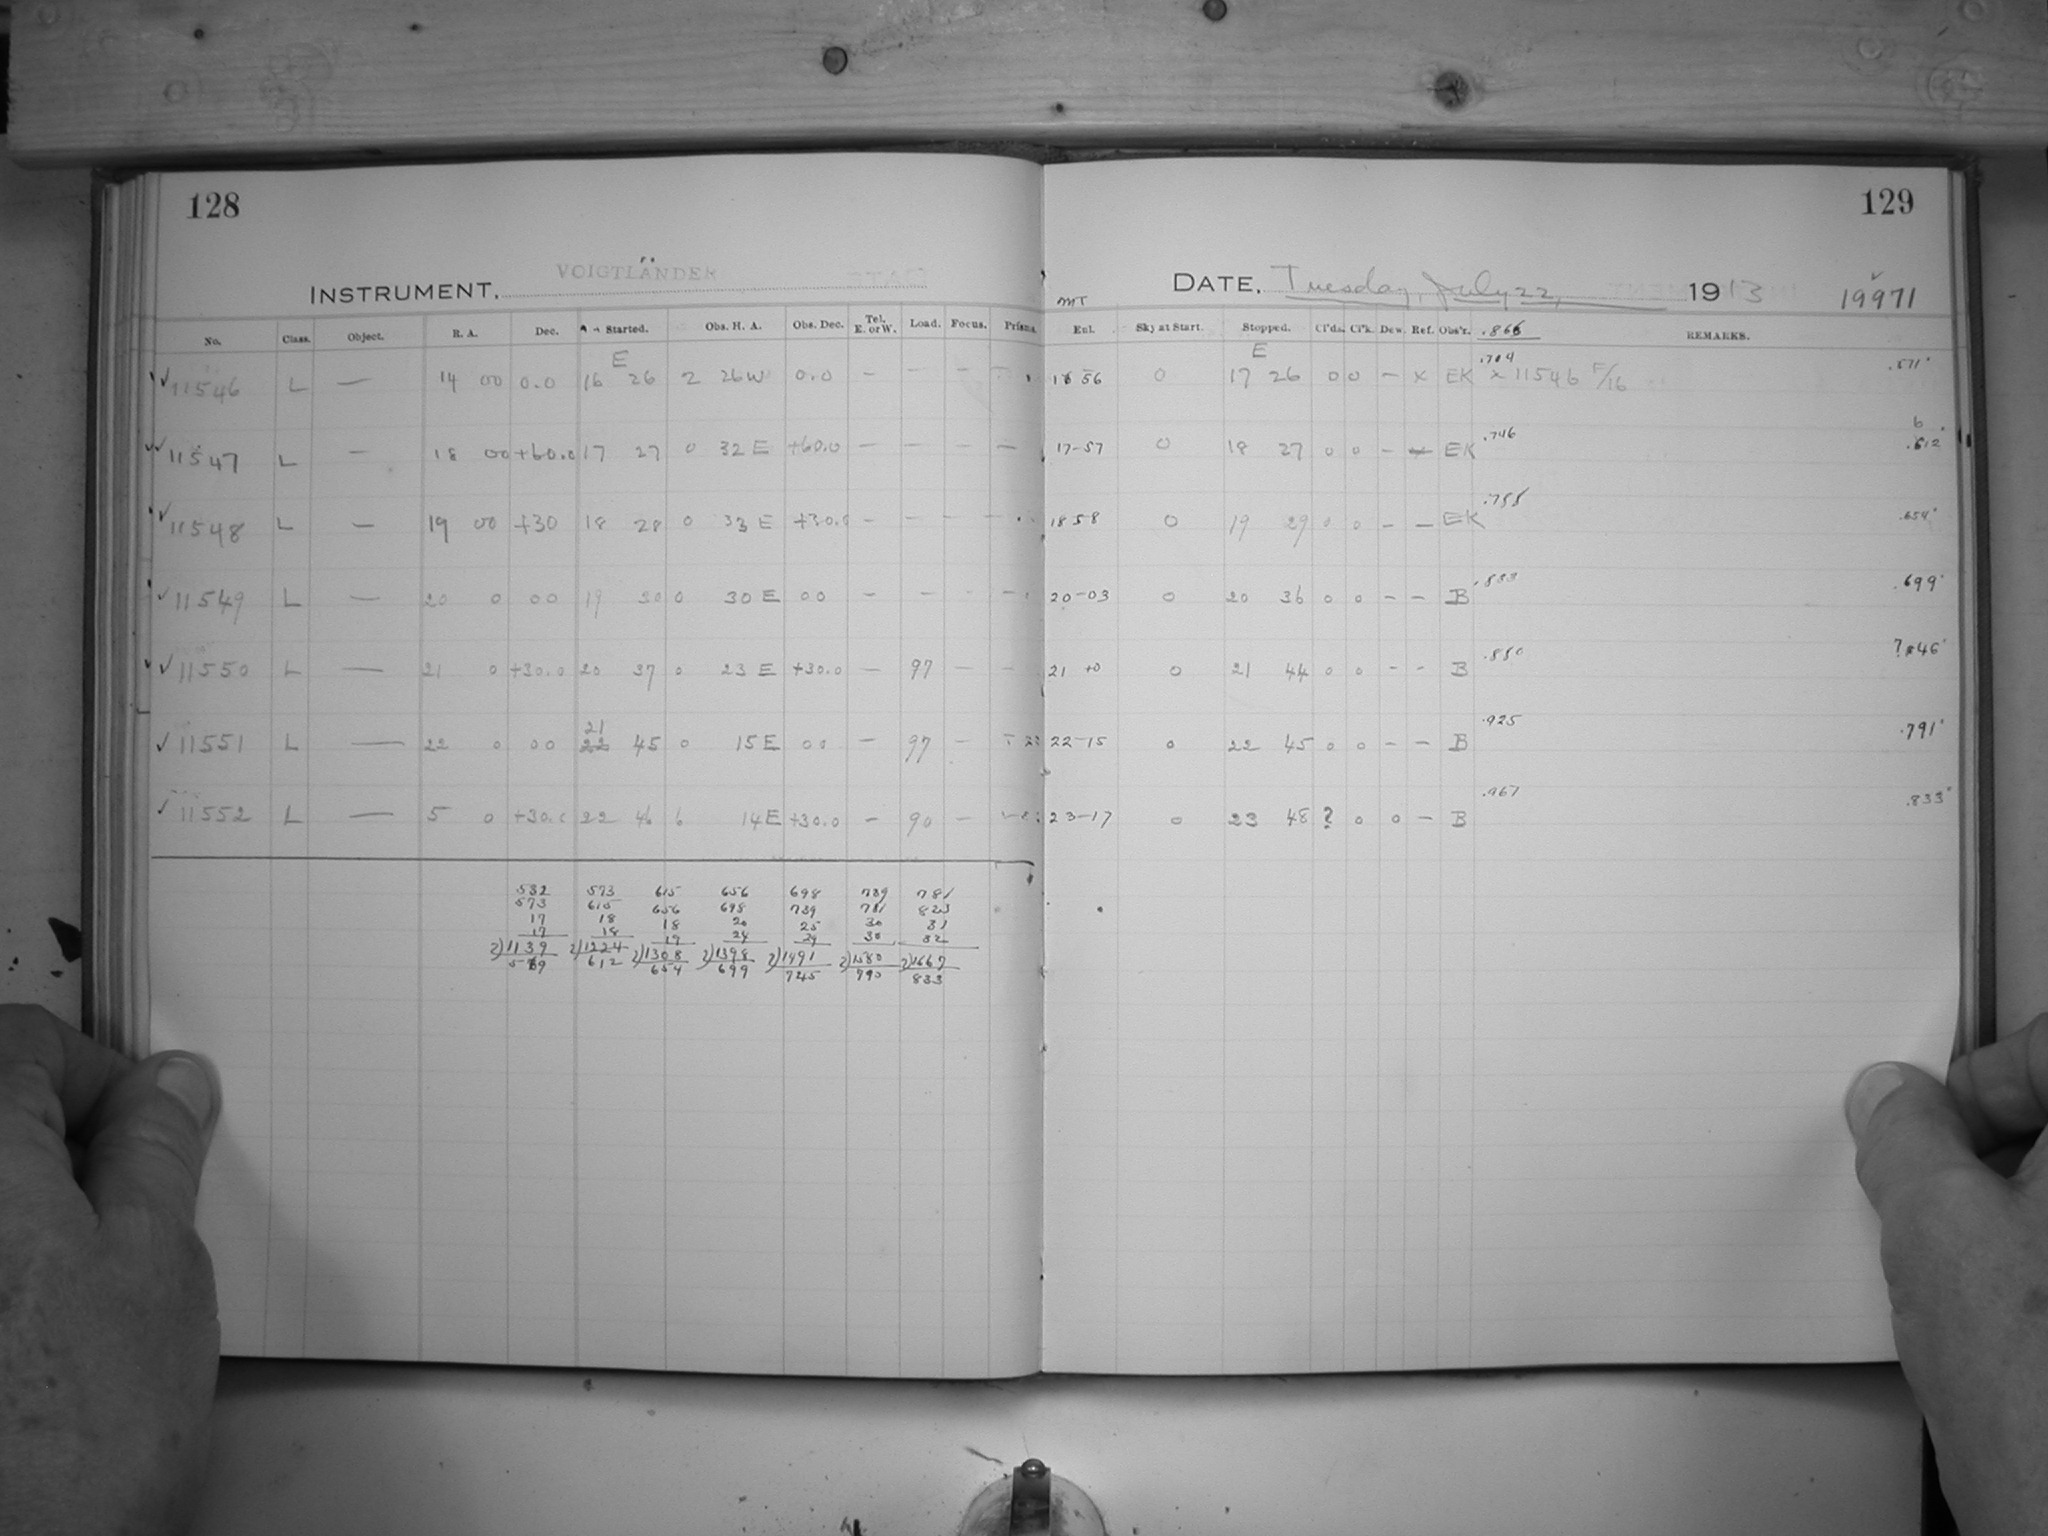 128
INSTRUMENT, VOIGTLÄNDER
No. Class. Object. R. A. Dec. Started. Obs. H. A. Obs. Dec. Tel. E. or W. Load. Focus. Prisms.
E
✓ 11546 L — 14 00 0.0 16 26 2 26W 0.0 — — —
✓ 11547 L — 18 00 +60.0 17 27 0 32 E +60.0 — — — —
✓ 11548 L — 19 00 +30 18 28 0 33 E +30.0 — — — —
✓ 11549 L — 20 0 00 19 30 0 30 E 00 — — — —
✓ 11550 L — 21 0 +30.0 20 37 0 23 E +30.0 — 97 — —
21
✓ 11551 L — 22 0 00 22 45 0 15 E 00 — 97 —
✓ 11552 L — 5 0 +30.0 22 46 6 14 E +30.0 — 90 —
532 573 615 656 698 739 781
573 615 656 698 739 781 823
17 18 18 20 25 30 31
17 18 19 24 29 30 32
2)1139 2)1224 2)1308 2)1398 2)1491 2)1580 2)1667
569 612 654 699 745 790 833
129
DATE, Tuesday, July 22, 1913 19971
MT
Eul. Sky at Start. Stopped. Cl'ds. Cl'k. Dew. Ref. Obs'r. .866 REMARKS.
E .704
16 56 0 17 26 0 0 — x EK x 11546 F/16 .571
17-57 0 18 27 0 0 — EK .746 .612
18 58 0 19 29 0 0 — — EK .788 .654
20-03 0 20 36 0 0 — — B .833 .699
21 10 0 21 44 0 0 — — B .880 .746
22-15 0 22 45 0 0 — — B .925 .791
23-17 0 23 48 ? 0 0 — B .967 .833